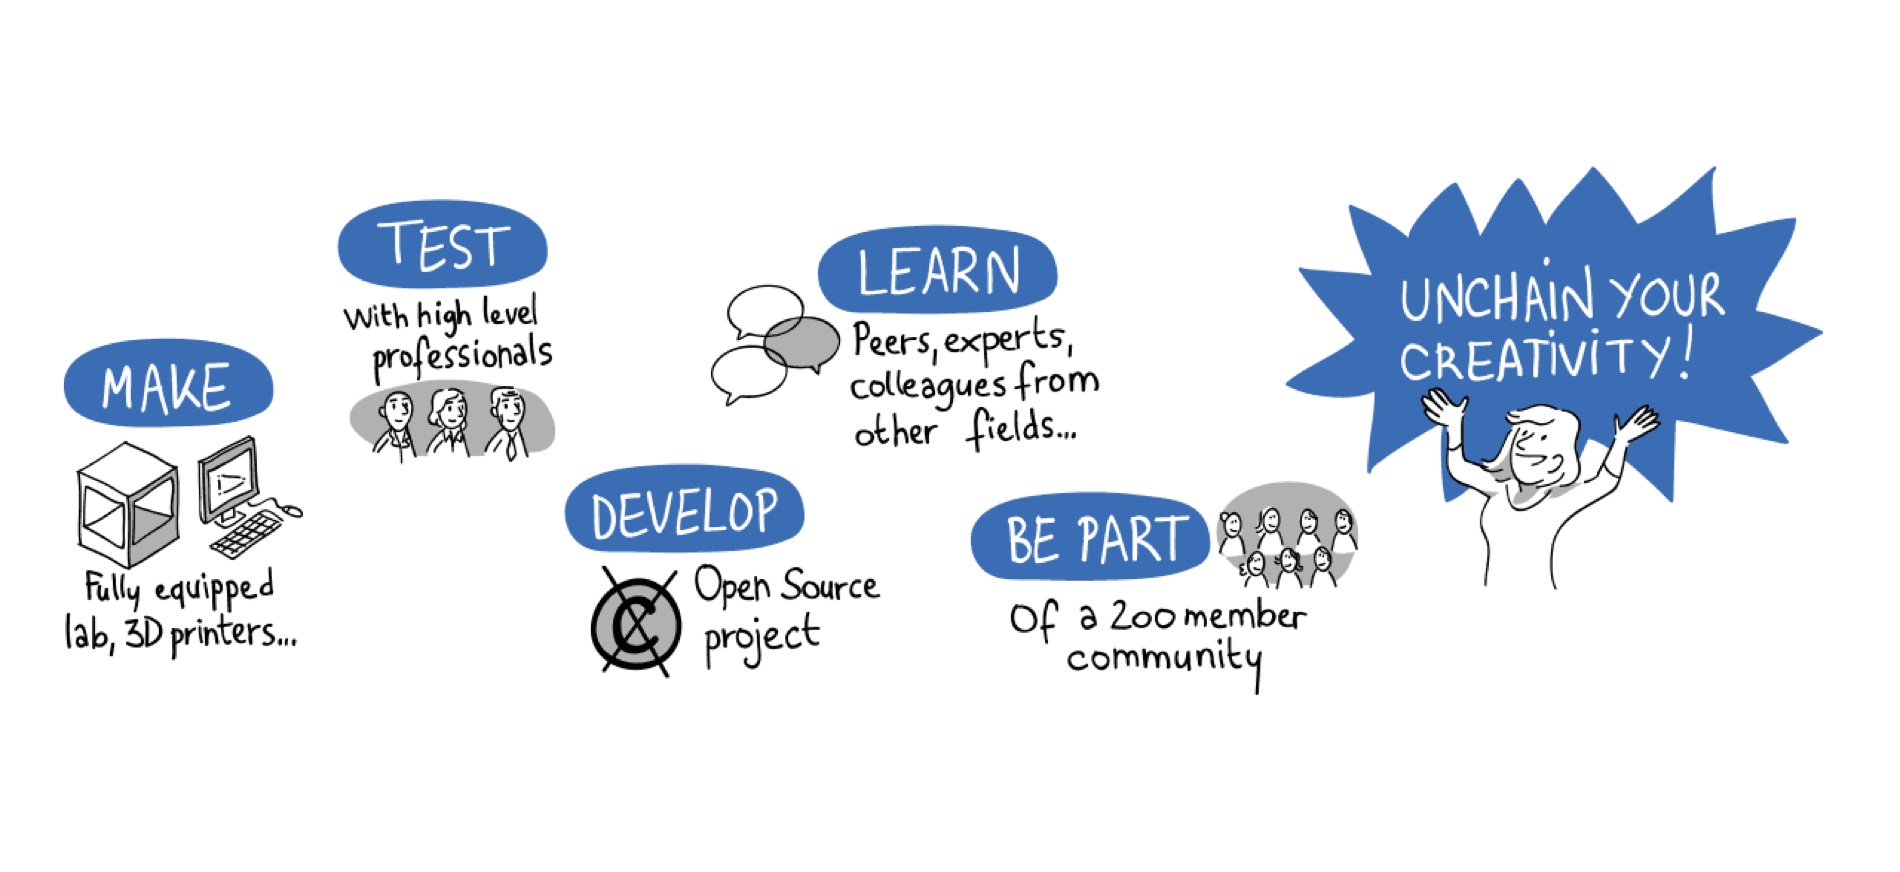 MAKE
Fully equipped
lab, 3D printers...
TEST
With high level
professionals
DEVELOP
C
Open Source
project
LEARN
Peers, experts,
colleagues from
other fields...
BE PART
Of a 200 member
community
UNCHAIN YOUR
CREATIVITY!